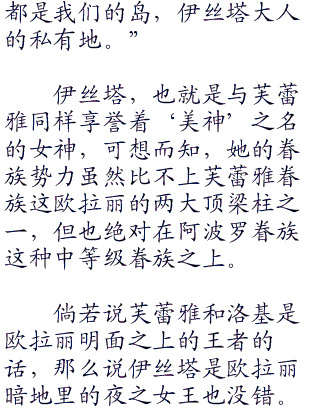 都是我们的岛，伊丝塔大人
的私有地。”
伊丝塔，也就是与芙蕾
雅同样享誉着‘美神’之名
的女神，可想而知，她的眷
族势力虽然比不上芙蕾雅眷
族这欧拉丽的两大顶梁柱之
一，但也绝对在阿波罗眷族
这种中等级眷族之上。
倘若说芙蕾雅和洛基是
欧拉丽明面之上的王者的
话，那么说伊丝塔是欧拉丽
暗地里的夜之女王也没错。